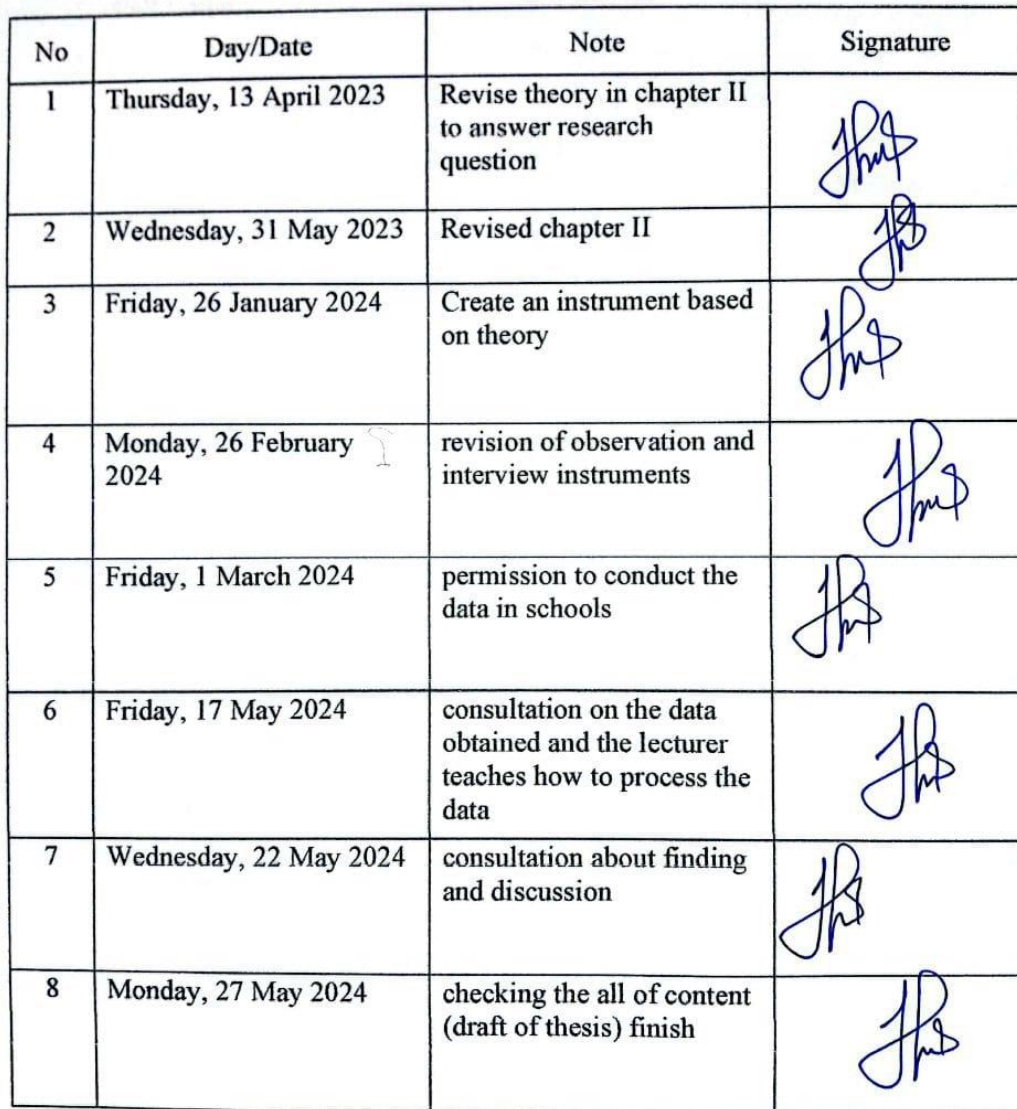 No Day/Date Note Signature
1 Thursday, 13 April 2023 Revise theory in chapter II
to answer research
question
2 Wednesday, 31 May 2023 Revised chapter II
3 Friday, 26 January 2024 Create an instrument based
on theory
4 Monday, 26 February revision of observation and
2024 interview instruments
5 Friday, 1 March 2024 permission to conduct the
data in schools
6 Friday, 17 May 2024 consultation on the data
obtained and the lecturer
teaches how to process the
data
7 Wednesday, 22 May 2024 consultation about finding
and discussion
8 Monday, 27 May 2024 checking the all of content
(draft of thesis) finish